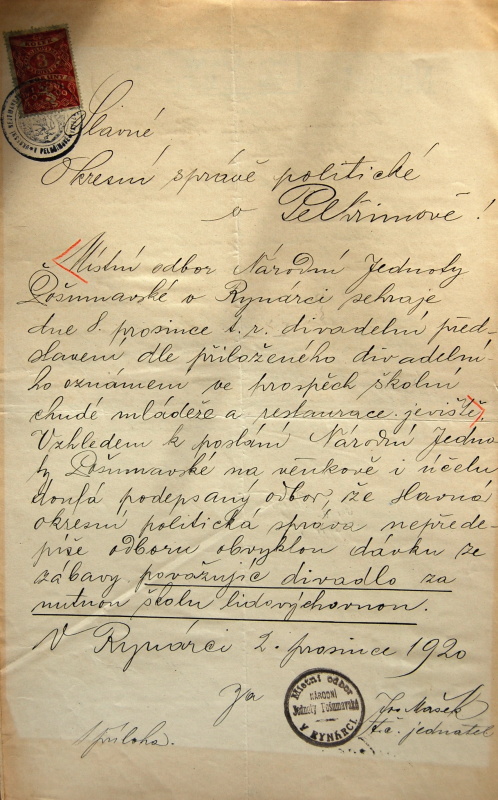 Slavné
Okresní správě politické
v Pelhřimově!
Místní odbor Národní Jednoty
Pošumavské v Rynárci sehraje
dne 8. prosince t. r. divadelní před-
stavení dle přiloženého divadelní-
ho oznámení ve prospěch školní
chudé mládeže a restaurace jeviště.
Vzhledem k poslání Národní Jedno-
ty Pošumavské na venkově i účelu
doufá podepsaný odbor, že slavná
okresní politická správa nepřede-
píše odboru obvyklou dávku ze
zábavy považujíc divadlo za
nutnou školu lidovýchovnou.
V Rynárci 2. prosince 1920
Za
Místní odbor
NÁRODNÍ
Jednoty Pošumavské
V RYNÁRCI.
Jos Mašek
t. č. jednatel
1 příloha.